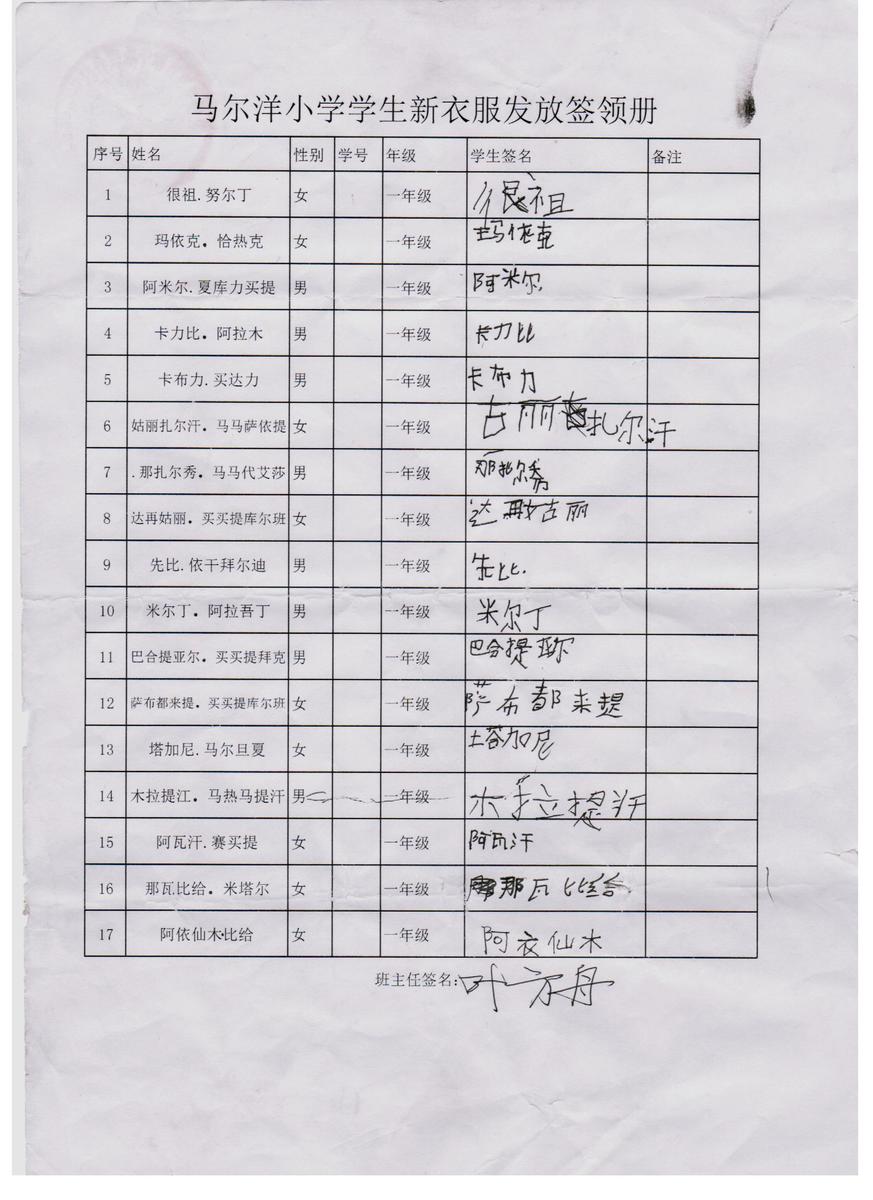 马尔洋小学学生新衣服发放签领册
序号 姓名 性别 学号 年级 学生签名 备注
1 很祖.努尔丁 女 一年级 很祖
2 玛依克。恰热克 女 一年级 玛依克
3 阿米尔.夏库力买提 男 一年级 阿米尔
4 卡力比。阿拉木 男 一年级 卡力比
5 卡布力.买达力 男 一年级 卡布力
6 姑丽扎尔汗。马马萨依提 女 一年级 古丽扎尔汗
7 .那扎尔秀。马马代艾莎 男 一年级 那扎尔秀
8 达再姑丽。买买提库尔班 女 一年级 达再古丽
9 先比.依干拜尔迪 男 一年级 先比.
10 米尔丁。阿拉吾丁 男 一年级 米尔丁
11 巴合提亚尔。买买提拜克 男 一年级 巴合提亚尔
12 萨布都来提。买买提库尔班 女 一年级 萨布都来提
13 塔加尼.马尔旦夏 女 一年级 塔加尼
14 木拉提江。马热马提汗 男 一年级 木拉提汗
15 阿瓦汗.赛买提 女 一年级 阿瓦汗
16 那瓦比给。米塔尔 女 一年级 那瓦比给.
17 阿依仙木·比给 女 一年级 阿衣仙木
班主任签名:叶方舟